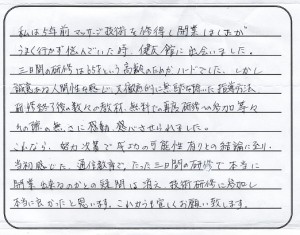 私は5年前マッサージ技術を修得し開業はしたが
うまく行かず悩んでいた時、健友館に出会いました。
三日間の研修は65才という高齢のためかハードでした。しかし
誠意ある人間性を感じ、大変親切に要所を得た指導方法、
研修終了後の数々の教材、無料での再度研修への参加等々
もの凄さに感動、感心させられました。
これなら、努力次第で成功の可能性有りとの結論に至り
当初感じた、通信教育で、たった三日間の研修で本当に
開業出来るのかとの疑問は消え、技術研修に参加し
本当に良かったと思います。これからも宜しくお願い致します。